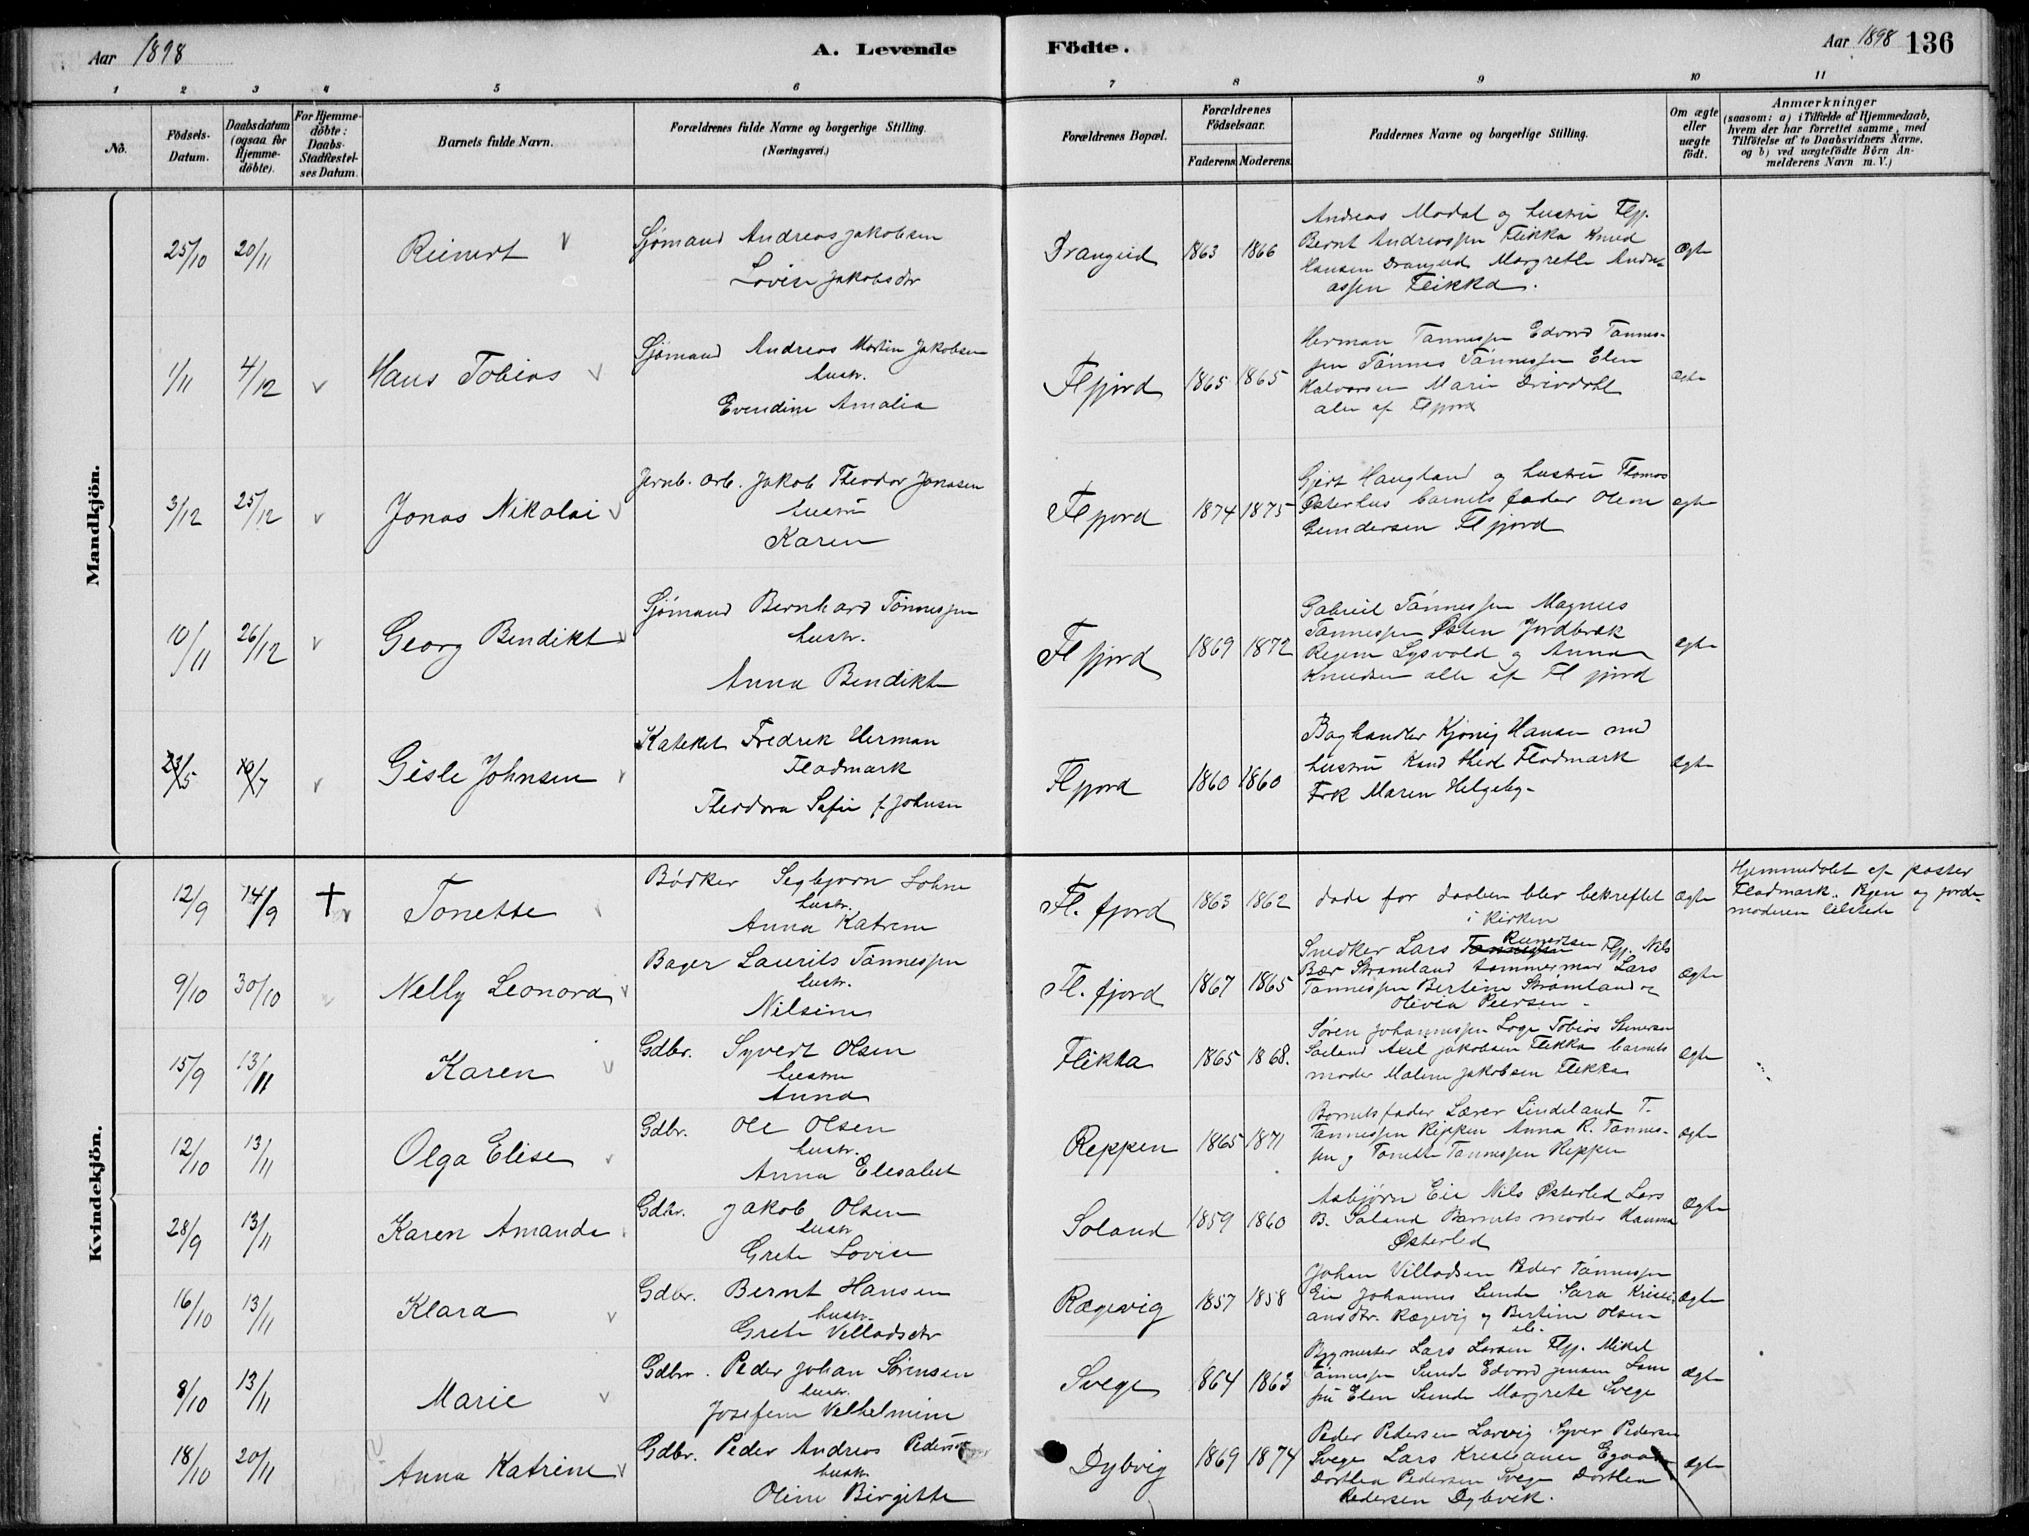 Aar 1898
A. Levende
Födte.
Aar 1898 136
1 2 3 4 5 6 7 8 9 10 11
No.
Födsels-Datum.
Daabsdatum (ogsaa for Hjemme-döbte).
For Hjemme-döbte: Daabs-Stadfæstel-ses Datum.
Barnets fulde Navn.
Forældrenes fulde Navne og borgerlige Stilling. (Næringsvei.)
Forældrenes Bopæl.
Forældrenes Födselsaar.
Faderens. Moderens.
Faddernes Navne og borgerlige Stilling.
Om ægte eller uægte födt.
Anmærkninger
(saasom: a) i Tilfælde af Hjemmedaab,
hvem der har forrettet samme, med
Tilföielse af to Daabsvidners Navne,
og b) ved uægtefödte Börn An-
melderens Navn m. V.)
Mandkjön.
25/10 20/11 Reinert
Sjömand Andreas Jakobsen
Lovise Jakobsdtr
Drangeid 1863 1866
Andreas Modal og hustru Flfj.
Bernt Andreassen Flikka Knud
Hansen Drangeid Margrethe Andre-
assen Flikka.
Ægte
1/11 4/12 Hans Tobias
Sjömand Andreas Martin Jakobsen
hustr.
Evendine Amalia
Flfjord 1865 1865
Herman Tønnessen Edvard Tønnes-
sen Tønnes Tønnessen Elen
Halvorsen Marie Drivdahl
alle af Flfjord
ægte
3/12 25/12 Jonas Nikolai
Jernb. arb. Jakob Theodor Jonasen
hustru
Karen
Flfjord 1874 1875
Gjert Haugland og hustru Thomas
Østerhus barnets fader Olene
Gundersen Flfjord
ægte
10/11 26/12 Georg Bendikt
Sjömand Bernhard Tönnessen
hustr.
Anna Bendikte
Flfjord 1869 1872
Gabriel Tönnessen Magnus
Tønnessen Østen Jordbræk
Regine Lysvold og Anna
Knudsen alle af Flfjord
ægte
23/5 10/7 Gisle Johnsen
Kateket Fredrik Herman
Fladmark
Theodora Sofie f. Johnsen
Flfjord 1860 1860
Boghandler Kjönig Hansen med
hustru Kand theol Fladmark
Frk Maren Helgeby
ægte
Kvindekjön.
12/9 14/9 † Tonette
Bödker Segbjørn Lohne
hustr.
Anna Katrine
Fl. fjord 1863 1862
döde før daaben blev bekreftet
i kirken
ægte
Hjemmedøbt af pastor
Fladmark. Pigen og jorde-
moderen tilstede
9/10 30/10 Nelly Leonora
Bager Laurits Tønnessen
hustr.
Nilsine
Fl. fjord 1867 1865
Snedker Lars Reinertsen Flfj. Nils
Bær Strømland tømmermand Lars
Tønnessen Bertine Strømland og
Olivia Peersen
Ægte
15/9 13/11 Karen
Gdbr. Syvert Olsen
hustru
Anna
Flikka 1865 1868.
Søren Johannessen Loge Tobias
Axel Jakobsen Flikka barnets
moder Malene Jakobsen Flikka
ægte
12/10 13/11 Olga Elise
Gdbr. Ole Olsen
hustr.
Anna Elisabet
Reppen 1865 1871
Barnets fader Lærer Lindeland T.
Tønnessen Reppen Anna R. Tønnes-
sen og Tonette Tønnessen Reppen
ægte
28/9 13/11 Karen Amanda
Gdbr. Jakob Olsen
hustr
Grete Lovise
Soland 1859 1860
Asbjørn Eie Nils Østerled Lars
B. Soland Barnets moder Hanna
Østerled
Ægte
16/10 13/11 Klara
Gdbr. Bernt Hansen
hustr.
Grete Villadsdtr
Rægevig 1857 1858
Johan Villadsen Peder Tønnessen
Eie Johannes Lunde Sara Kristi-
ansdtr. Rægevig og Bertine Olsen
Eie
Ægte
8/10 13/11 Marie
Gdbr. Peder Johan Sørensen
hustr.
Josefine Velhelmine
Svege 1864 1863
Bygmester Lars Larsen Flfj. Mikel
Tønnessen Sunde Edvard Jensen
Elen Sunde Margrete Svege
Ægte
18/10 20/11 Anna Katrine
Gdbr. Peder Andreas Pedersen
hustr.
Oline Birgitte
Dybvig 1869 1874
Peder Pedersen Larvig Syver Pedersen
Svege Lars Kristiansen
Dorthea Pedersen Svege Dorthea
Pedersen Dybvik.
ægte